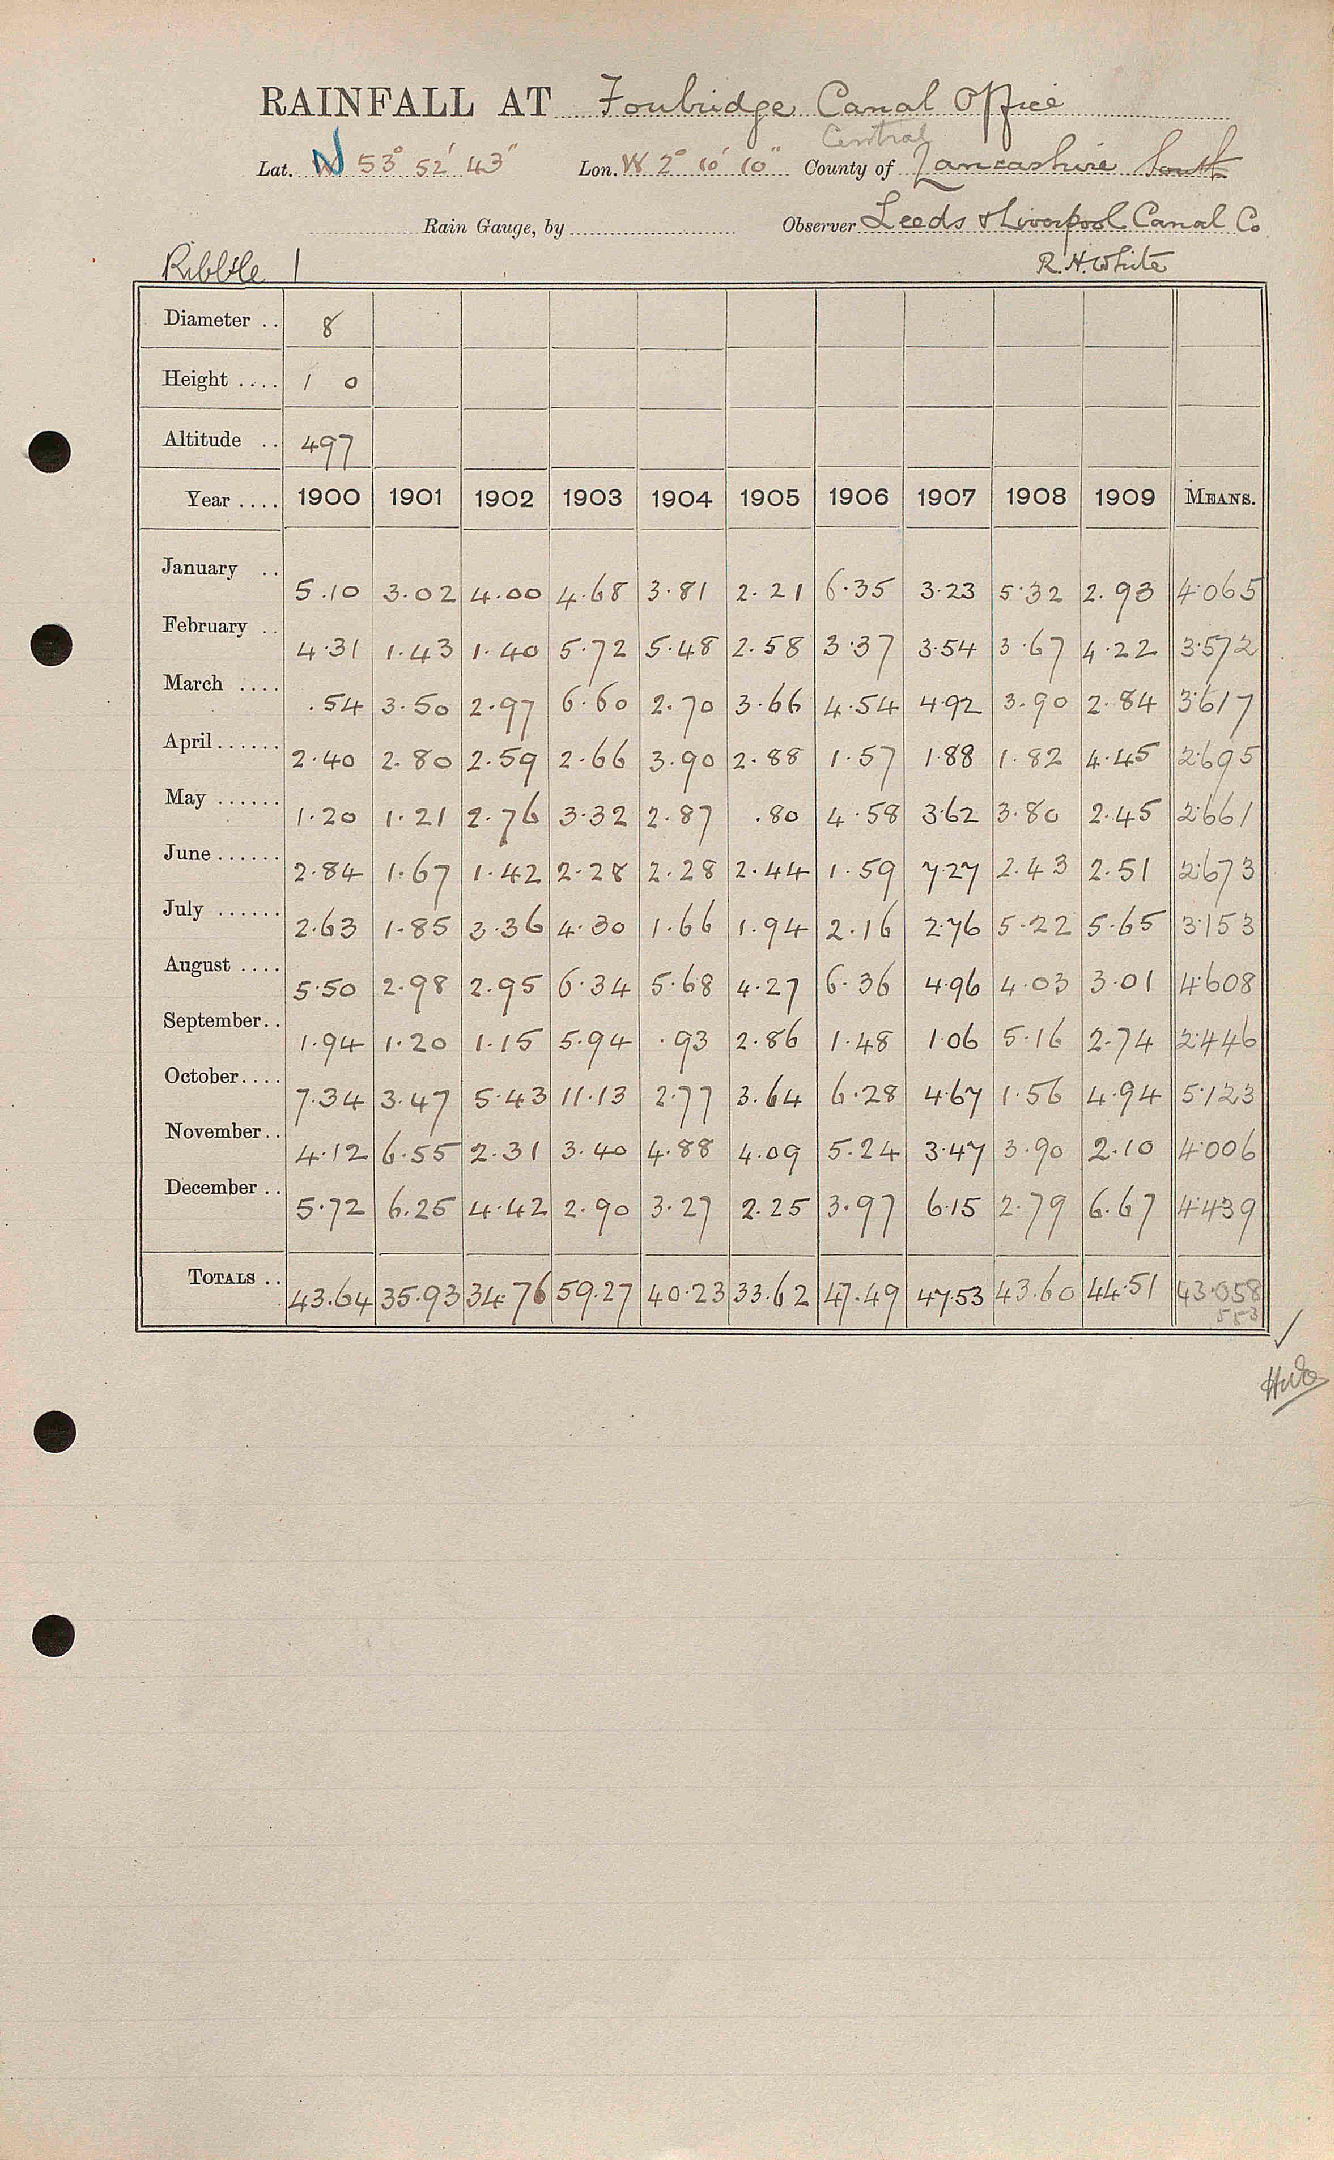 RAINFALL AT Foulridge Canal Office
Central
Lat. N 53° 52' 43" Lon. W 2° 10' 10" County of Lancashire South
Rain Gauge, by Observer Leeds & Liverpool Canal Co
Ribble 1 R. H. White
Diameter .. 8
Height .... 1 0
Altitude .. 497
Year .... 1900 1901 1902 1903 1904 1905 1906 1907 1908 1909 MEANS.
January .. 5.10 3.02 4.00 4.68 3.81 2.21 6.35 3.23 5.32 2.93 4.065
February .. 4.31 1.43 1.40 5.72 5.48 2.58 3.37 3.54 3.67 4.22 3.572
March .... .54 3.50 2.97 6.60 2.70 3.66 4.54 4.92 3.90 2.84 3.617
April ...... 2.40 2.80 2.59 2.66 3.90 2.88 1.57 1.88 1.82 4.45 2.695
May ...... 1.20 1.21 2.76 3.32 2.87 .80 4.58 3.62 3.80 2.45 2.661
June ...... 2.84 1.67 1.42 2.28 2.28 2.44 1.59 7.27 2.43 2.51 2.673
July ...... 2.63 1.85 3.36 4.30 1.66 1.94 2.16 2.76 5.22 5.65 3.153
August .... 5.50 2.98 2.95 6.34 5.68 4.27 6.36 4.96 4.03 3.01 4.608
September.. 1.94 1.20 1.15 5.94 .93 2.86 1.48 1.06 5.16 2.74 2.446
October.... 7.34 3.47 5.43 11.13 2.77 3.64 6.28 4.67 1.56 4.94 5.123
November.. 4.12 6.55 2.31 3.40 4.88 4.09 5.24 3.47 3.90 2.10 4.006
December .. 5.72 6.25 4.42 2.90 3.27 2.25 3.97 6.15 2.79 6.67 4.439
TOTALS .. 43.64 35.93 34.76 59.27 40.23 33.62 47.49 47.53 43.60 44.51 43.058